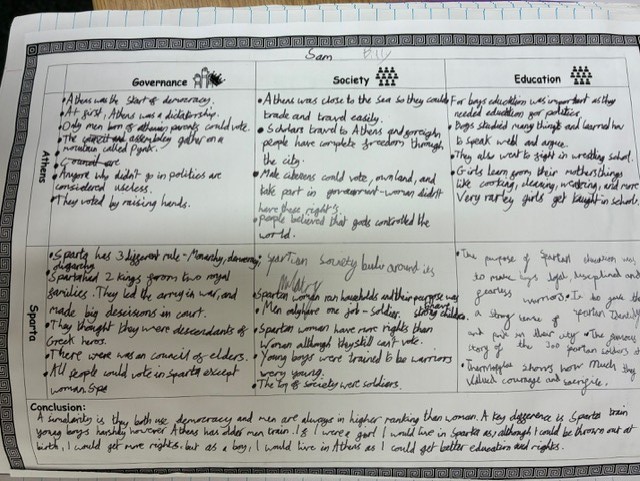 Sam Billy
Governance
Society
Education
Athens
• Athens was the start of democracy.
• At first, Athens was a dictatorship.
• Only men born of athenian parents could vote.
• The assembley gather on a
mountain called Pynx.
• Council are
• Anyone who didn't go in politics are
considered useless.
• They voted by raising hands.
• Athens was close to the sea so they could
trade and travel easily.
• Scholars travel to Athens and foreign
people have complete freedom through
the city.
• Male citizens could vote, own land, and
take part in government - woman didn't
have these right's.
• people believed that gods controlled the
world.
For boys education was important as they
needed education for politics.
Boys studied many things and learned how
to speak well and argue.
• They also went to fight in wrestling school.
• Girls learn from their mothers things
like cooking, cleaning, weaving, and more
Very rarley girls get taught in school.
Sparta
• Sparta has 3 different rule - Monarchy, democracy,
oligarchy
• Sparta had 2 kings from two royal
families. They led the army in war, and
made big descisions in court.
• They thought they were descendants of
Greek heros.
• There was un council of elders.
• All people could vote in Sparta except
woman.
• Spartian Society around its
Military
Spartan woman ran households and their purpose was
• Men only have one job - Soldier. strong children.
• Spartan woman have more rights than
woman although they still can't vote.
• Young boys were trained to be warriors
very young.
• The top of society were soldiers.
• The purpose of Spartan education was
to make boys loyal, disciplined and
fearless warriors. • It too gave them
a strong sense of Spartan Identity
and pride in their city • The famous
story of the 300 spartan soldiers at
• Thermopylae shows how much they
valued courage and sacrifice.
Conclusion:
A similarity is they both use democracy and men are always in higher ranking than woman. A key difference is Sparta train
young boys harshly however Athens has older men train. If I were a girl I would live in Sparta as, although I could be thrown out at
birth, I would get more rights. but as a boy, I would live in Athens as I could get better education and rights.